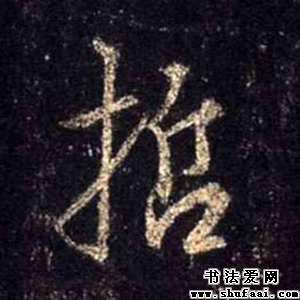 哲
书法爱网
www.shufaai.com